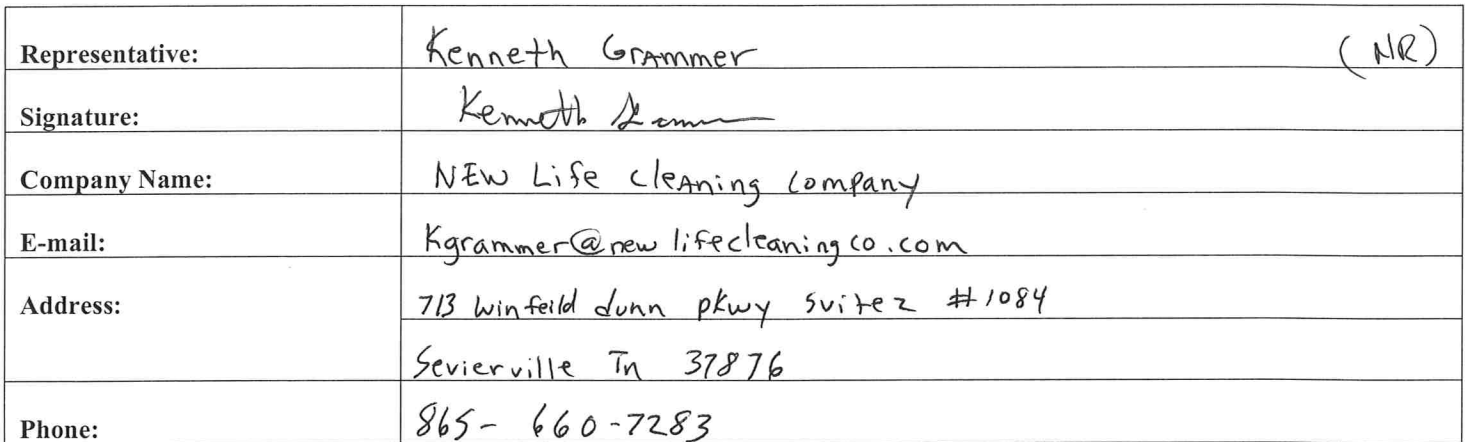 Representative: Kenneth Grammer (NR)
Signature: Kenneth
Company Name: NEW Life cleaning company
E-mail: Kgrammer@newlifecleaningco.com
Address: 713 winfeild dunn pkwy suite 2 #1084
Sevierville Tn 37876
Phone: 865-660-7283